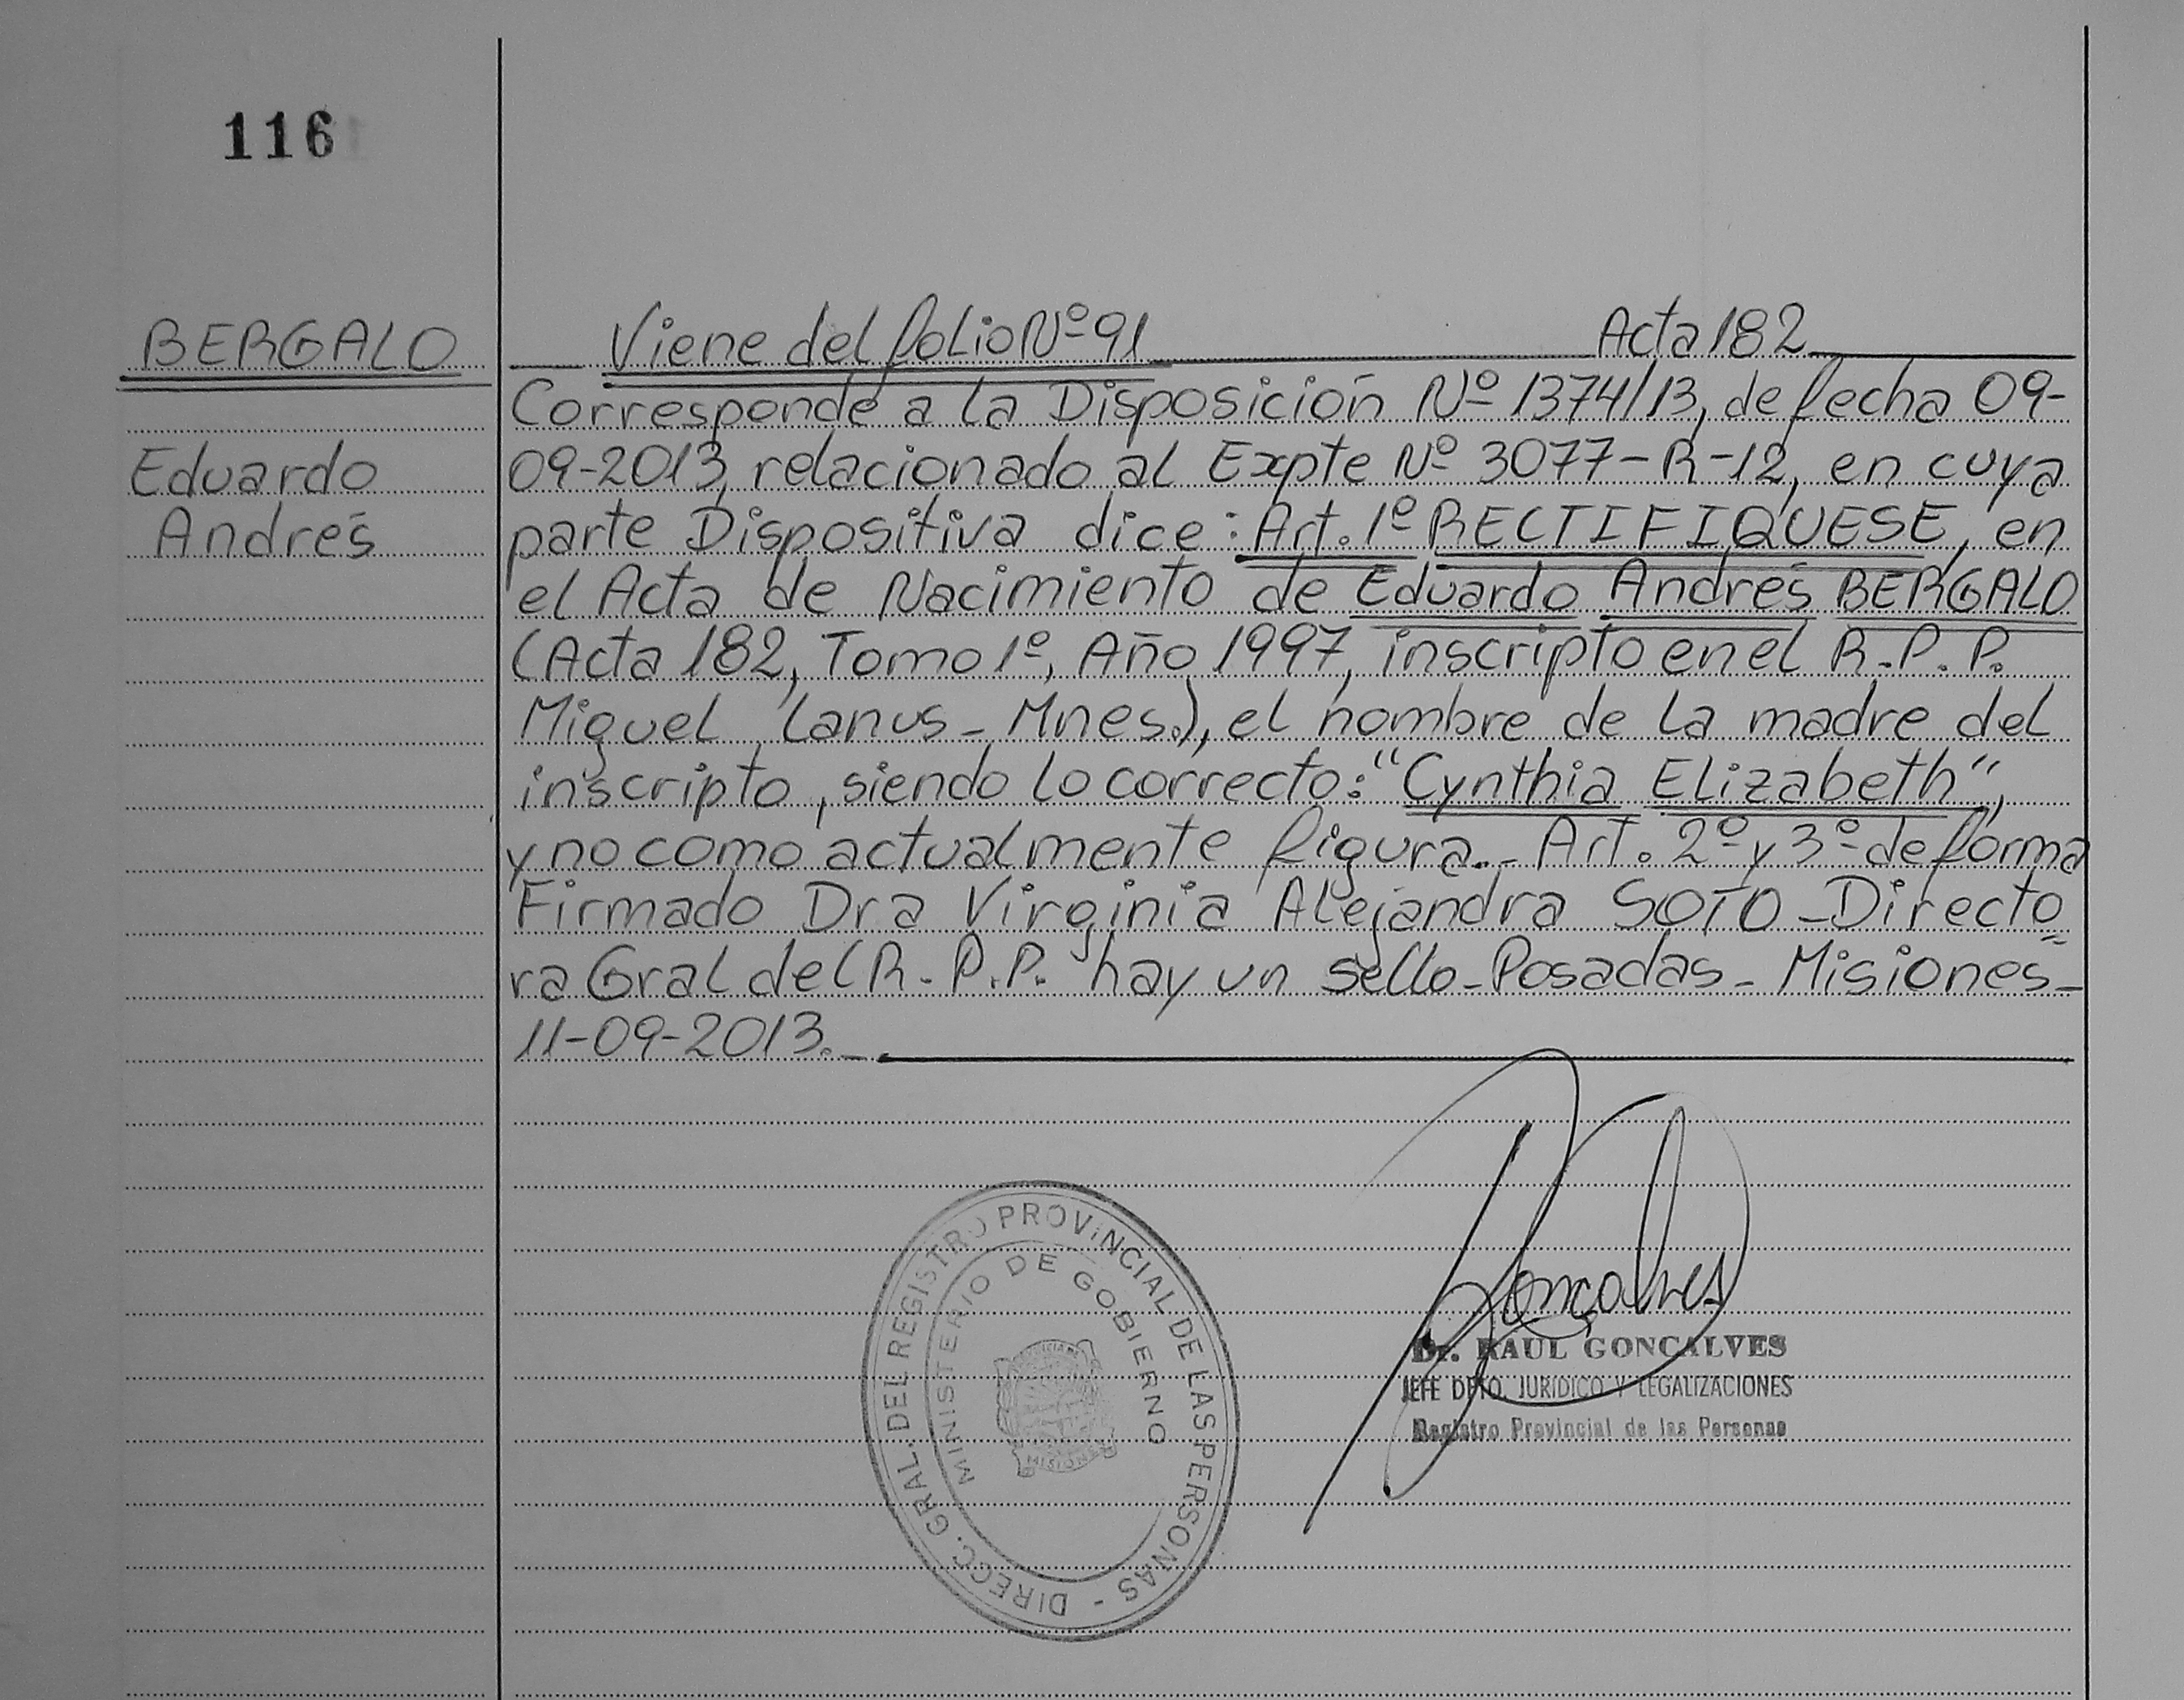 116
BERGALO
Eduardo
Andrés
Viene del folio Nº 91 Acta 182
Corresponde a la Disposición Nº 1374/13, de fecha 09-
09-2013, relacionado al Expte Nº 3077-R-12, en cuya
parte Dispositiva dice: Art. 1º RECTIFIQUESE, en
el Acta de Nacimiento de Eduardo Andrés BERGALO
(Acta 182, Tomo 1º, Año 1997, inscripto en el R.P.P.
Miguel Lanus - Mnes.), el nombre de la madre del
inscripto, siendo lo correcto: "Cynthia Elizabeth",
y no como actualmente figura.- Art. 2º y 3º de forma
Firmado Dra Virginia Alejandra SOTO - Directo=
ra Gral del R.P.P. hay un sello - Posadas - Misiones -
11-09-2013.-
DIRECC. GRAL. DEL REGISTRO PROVINCIAL DE LAS PERSONAS -
MINISTERIO DE GOBIERNO
MISIONES
Gonçalves
Dr. RAUL GONCALVES
JEFE DPTO. JURIDICO Y LEGALIZACIONES
Registro Provincial de las Personas